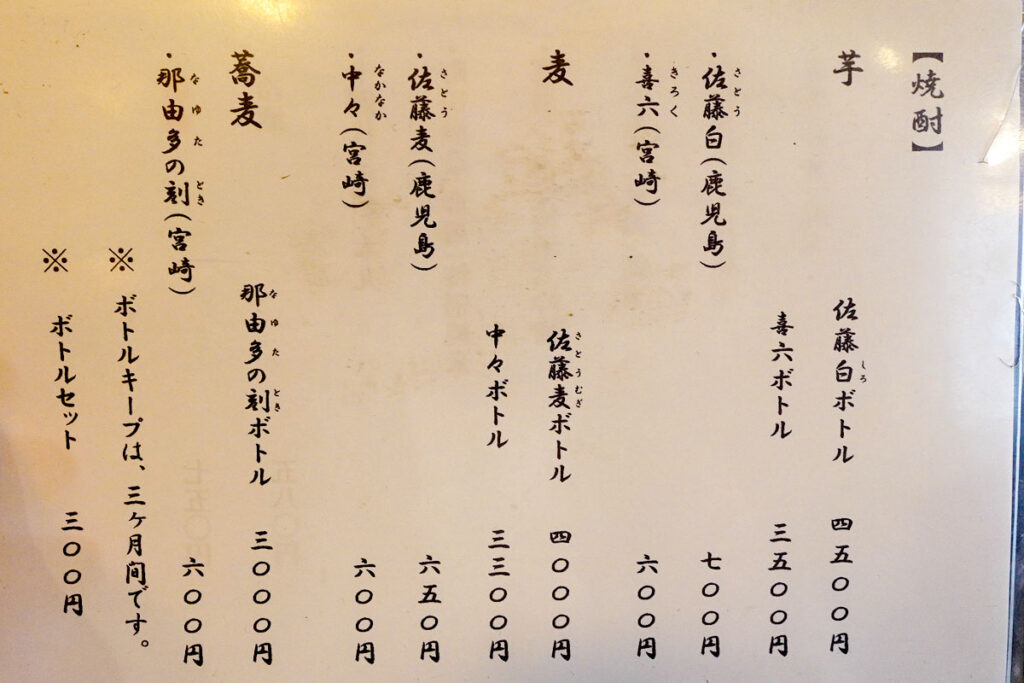 【焼酎】
芋
佐藤白ボトル 四五〇〇円
喜六ボトル 三五〇〇円
・佐藤白(鹿児島) 七〇〇円
・喜六(宮崎) 六〇〇円
麦
佐藤麦ボトル 四〇〇〇円
中々ボトル 三三〇〇円
・佐藤麦(鹿児島) 六五〇円
・中々(宮崎) 六〇〇円
蕎麦
那由多の刻ボトル 三〇〇〇円
・那由多の刻(宮崎) 六〇〇円
※ ボトルキープは、三ヶ月間です。
※ ボトルセット 三〇〇円